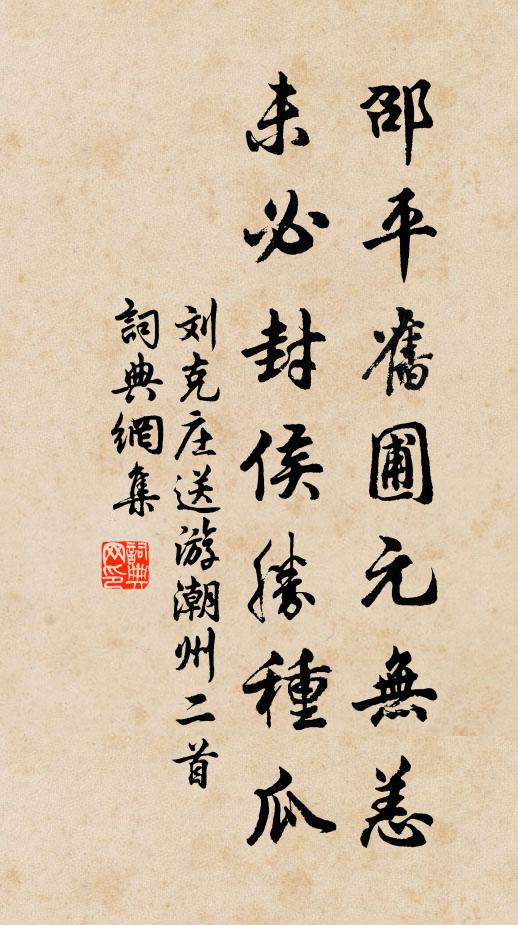 邵平舊圃元無恙
未必封侯勝種瓜
刘克庄送游潮州二首
詞典網集
詞典網印